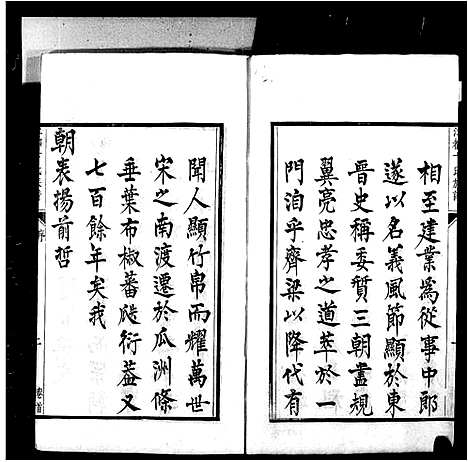 相至建業為從事中郎
遂以名義風節顯於東
晉史稱委質三朝盡規
翼亮忠孝之道萃於一
門洎乎齊梁以降代有
聞人顯竹帛而耀萬世
宋之南渡遷於瓜洲條
垂葉布椒蕃瓞衍蓋又
七百餘年矣我
朝表揚前哲
序
卷首